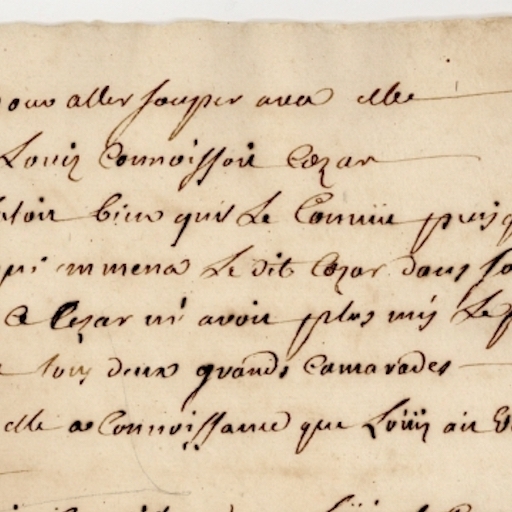 pour aller souper avec elle
Louis Connoissoit Cezar
bien quil Le Connu puisq
qui emmena Le dit Cezar dans so
Cezar ni avoit plus mis Le p
tous deux grands Camarades
elle a Connoissance que Loüis ait